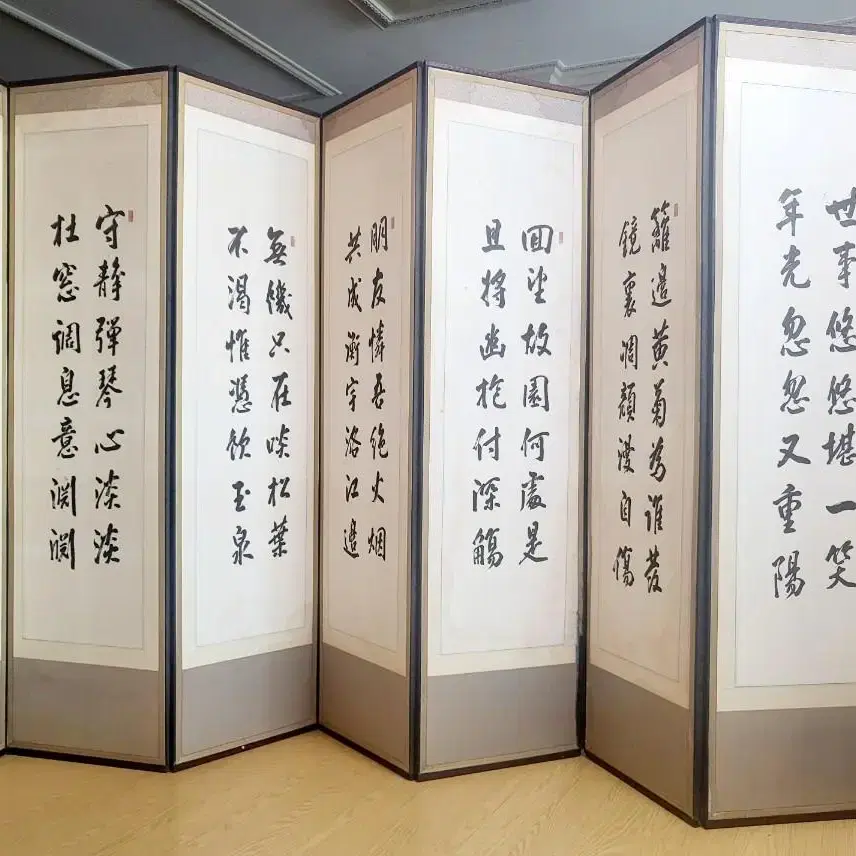 世事悠悠堪一笑
年光忽忽又重陽
籬邊黄菊為誰發
鏡裏凋顔漫自傷
回望故園何處是
且將幽抱付深觴
朋友憐吾絶火烟
共成衡宇洛江邊
無饑只在啖松葉
不渴惟憑飲玉泉
守靜彈琴心淡淡
杜窓調息意淵淵